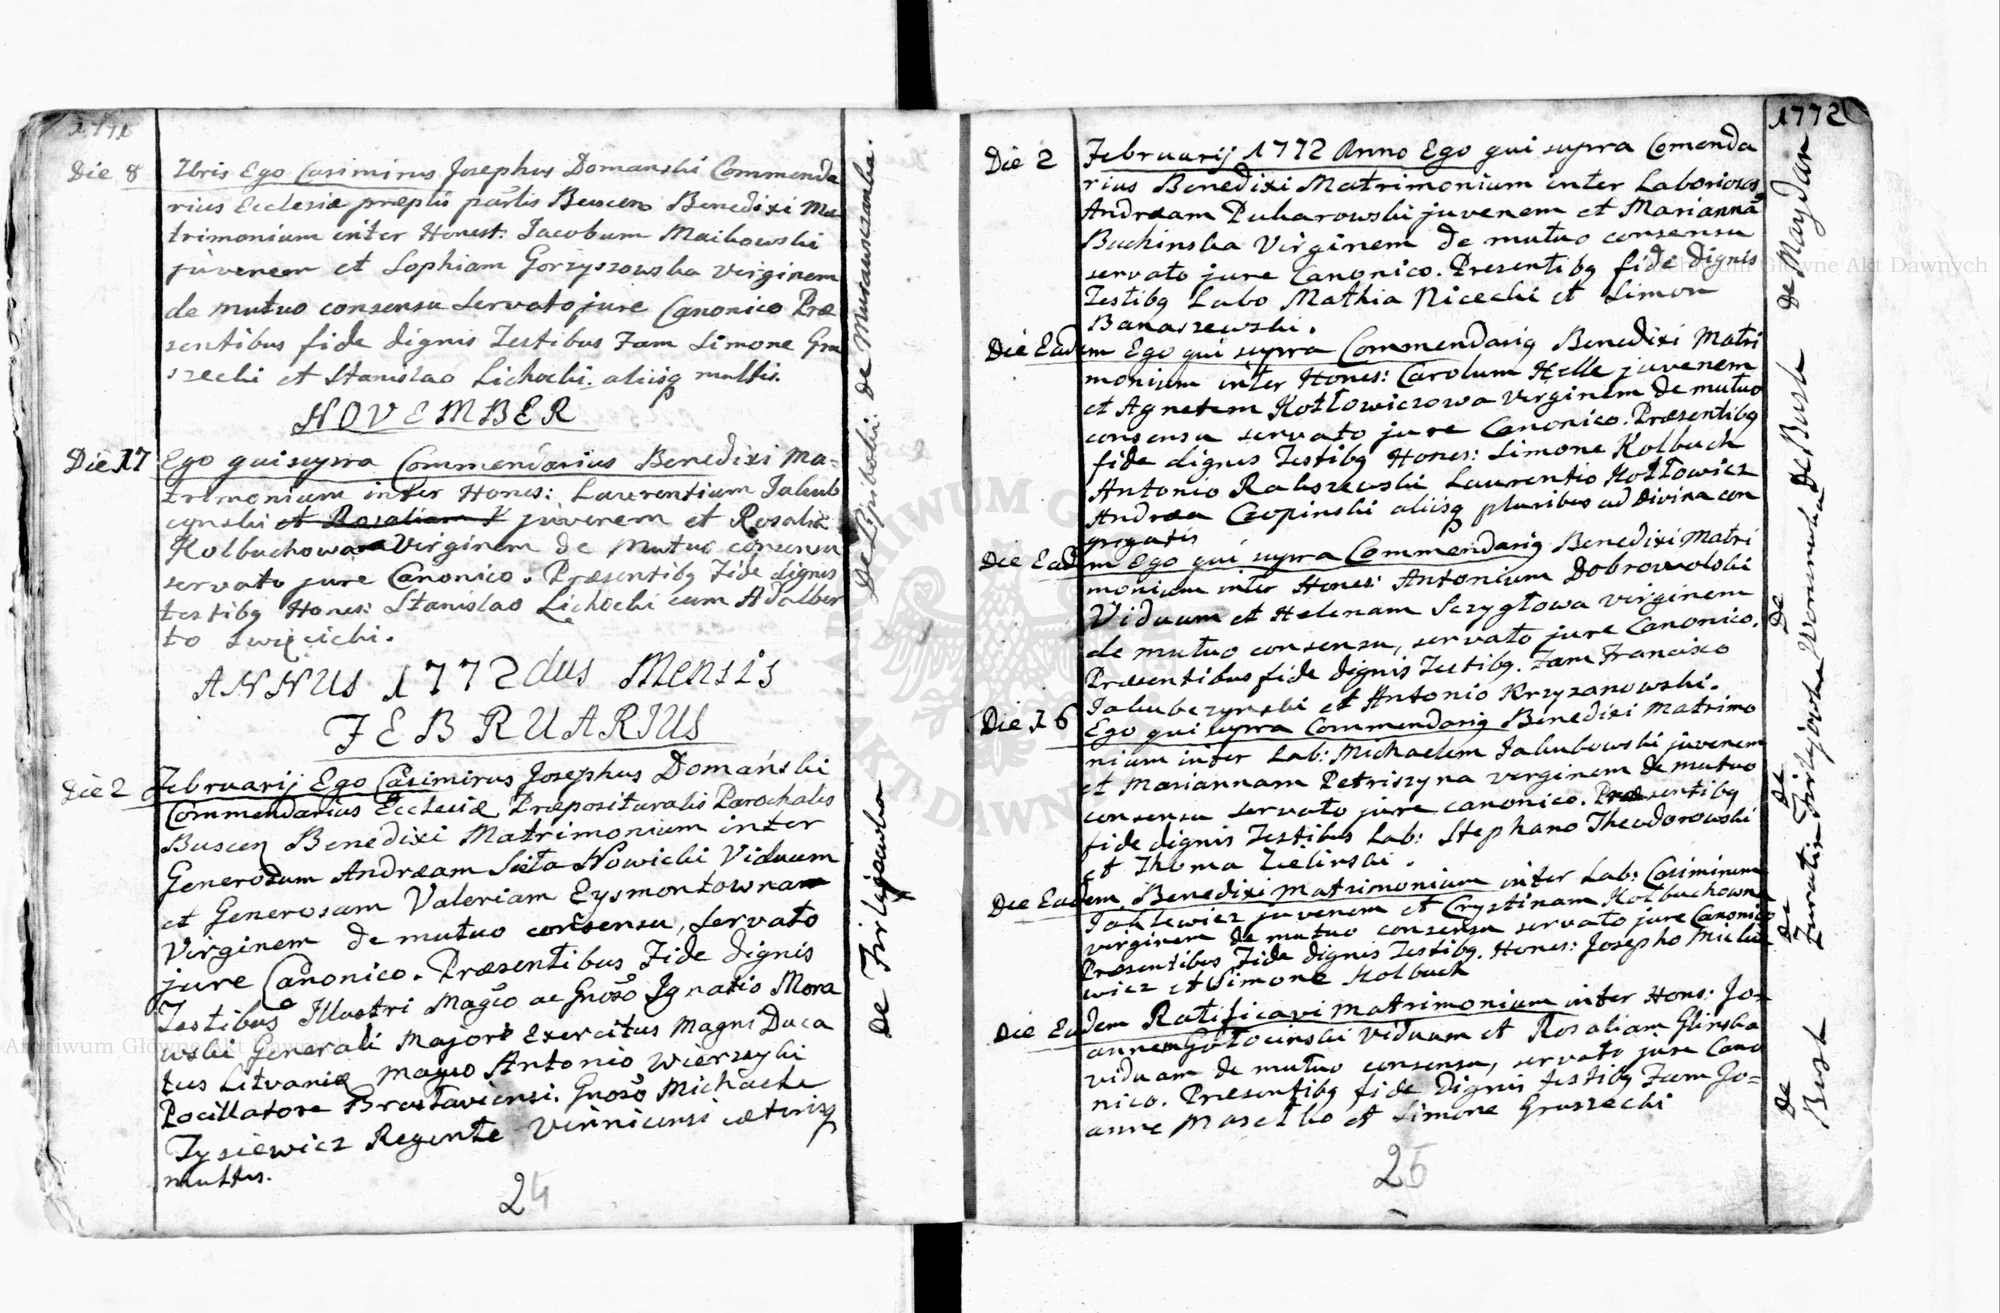 1771
Die 8 Ibris Ego Casimirus Josephus Domanski Commenda
rius Ecclesiæ præplis parlis Buscen Benedixi Ma
trimonium inter Honest: Jacobum Maikowski
juvenem et Sophiam Gorzyszowska Virginem
de mutuo consensu servato jure Canonico Præ
sentibus fide dignis Testibus Fam Simone Gru
szecki et Stanislao Lichocki. aliisq multis.
NOVEMBER
Die 17 Ego qui supra Commendarius Benedixi Ma=
trimonium inter Hones: Laurentium Jakub
cynski et Rosaliam K juvenem et Rosalia
Kolbuchowa Virginem de mutuo consensu
servato jure Canonico. Præsentibq Fide dignis
testibq Hones: Stanislao Lichocki cum Adalber
to Swięcicki.
ANNUS 1772dus Mensis
FEBRUARIUS
Die 2 Februarij Ego Casimirus Josephus Domański
Commendarius Ecclesiæ Præposituralis Parochalis
Buscen Benedixi Matrimonium inter
Generosum Andræam Nowicki Viduum
et Generosam Valeriam Eysmontowna
Virginem de mutuo consensu, servato
jure Canonico. Præsentibus Fide dignis
Testibus Illustri Magco ac Gnoso Ignatio Mora
wski Generali Majori Exercitus Magni Duca
tus Litvaniæ Antonio Wierzycki
Pocillatore Braslaviensi. Gnoso Michaele
Tysiewicz Regente cæterisq
multis.
24
de Murawszanka.
de
de Firlejowka
1772
Die 2 Februarij 1772 Anno Ego qui supra Comenda
rius Benedixi Matrimonium inter Laboriosos
Andræam Puharowski juvenem et Mariannã
Buchinska Virginem de mutuo consensu
servato jure Canonico. Presentibq fide dignis
Testibq Labo Mathia Nicecki et Simon
Banaszewski.
Die Eadem Ego qui supra Commendariq Benedixi Matri
monium inter Hones: Carolum Helle juvenem
et Agnetem Kotłowiczowa Virginem de mutuo
consensu servato jure Canonico. Præsentibq
fide dignis Testibq Hones: Simone Kolbuch
Antonio Rakszewski Laurentio Kotłowicz
Andræa Czopinski aliisq pluribus ad Divina con
gregatis
Die Eadem Ego qui supra Commendariq Benedixi Matri
monium inter Hones: Antonium Dobrowolski
Viduum et Helenam Szzygłowa virginem
de mutuo consensu, servato jure Canonico.
Præsentibus fide dignis Testibq. Fam Francisco
Jakubczynski et Antonio Krzyzanowski.
Die 16 Ego qui supra Commendariq Benedixi Matrimo
nium inter Lab: Michaelem Jakubowski juvenem
et Mariannam Petriszyna virginem de mutuo
consensu servato jure canonico. Præsentibq
fide dignis Testibus Lab: Stephano Theodorowski
et Thoma Zielinski.
Die Eadem Benedixi matrimonium inter Lab: Casimirum
Jaklewicz juvenem et Crystinam Kolbuchowna
virginem de mutuo consensu servato jure Canonico
Præsentibus Fide dignis Testibq. Hones: Josepho Mickie
wicz et Simone Kolbuch
Die Eadem Ratificavi matrimonium inter Hons: Jo=
annem Gołocinski Viduum et Rosaliam Glinska
viduam de mutuo consensu, servato jure Cano
nico. Præsentibq fide Dignis testibq Fam Jo=
anne Maselko et Simone Gruszecki
25
de Maydan
de Busk
De Firlejowka
de
de
De Busk
Archiwum Główne Akt Dawnych
Archiwum Główne Akt Dawnych
ARCHIWUM GŁÓWNE AKT DAWNYCH